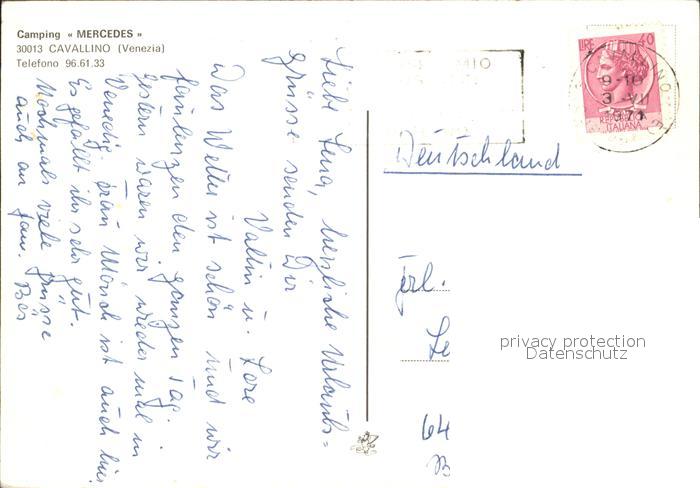 Camping « MERCEDES »
30013 CAVALLINO (Venezia)
Telefono 96.61.33
Liebe Lena, herzliche Urlaubs=
grüsse senden Dir
Vallin u. Lore
Das Wetter ist schön und wir
faulenzen den ganzen Tag.
Gestern waren wir wieder mal in
Venedig. Frau Mönch ist auch hier
Es gefällt ihr sehr gut.
Nochmals viele Grüsse
auch an Fam.
LIRE 40
ITALIANA
9-10
3-VI
Deutschland
Frl.
Le
64
B
privacy protection
Datenschutz